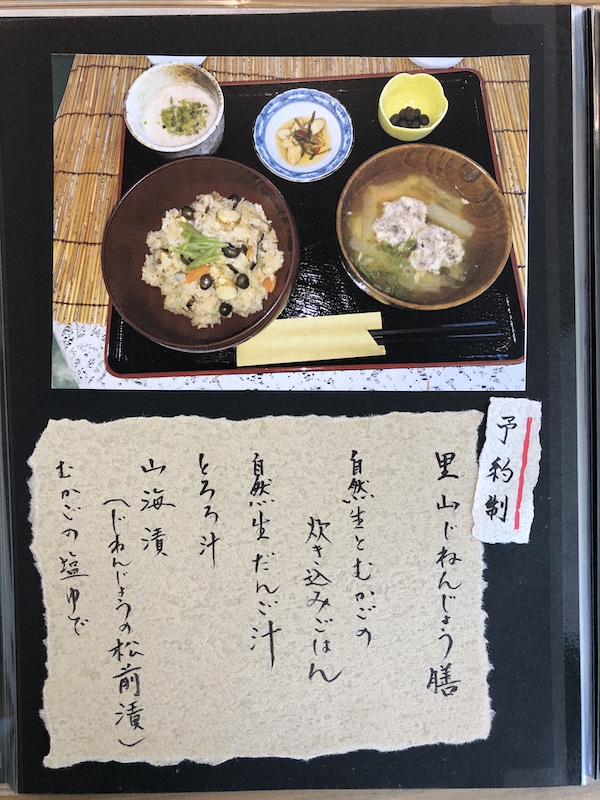 予約制
里山じねんじょう膳
自然生とむかごの
炊き込みごはん
自然生だんご汁
とろろ汁
山海漬
(じねんじょうの松前漬)
むかごの塩ゆで